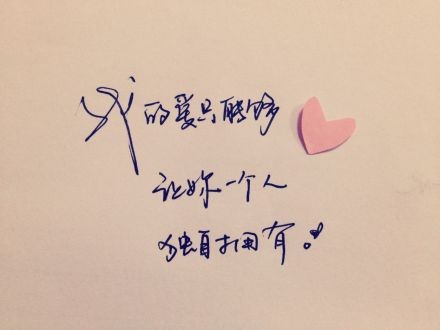 我的爱只能够
让你一个人
独自拥有。